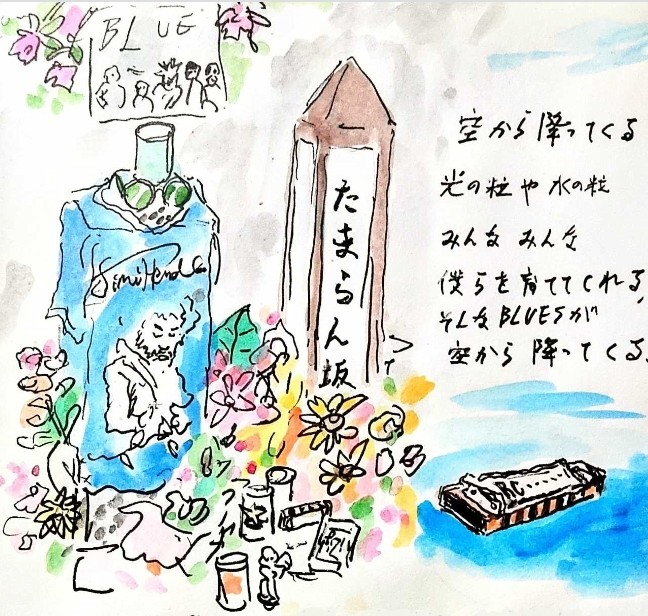 BLUE
たまらん坂
空から降ってくる
光の粒や水の粒
みんな みんな
僕らを育ててくれる、
そんなBLUESが
空から降ってくる。